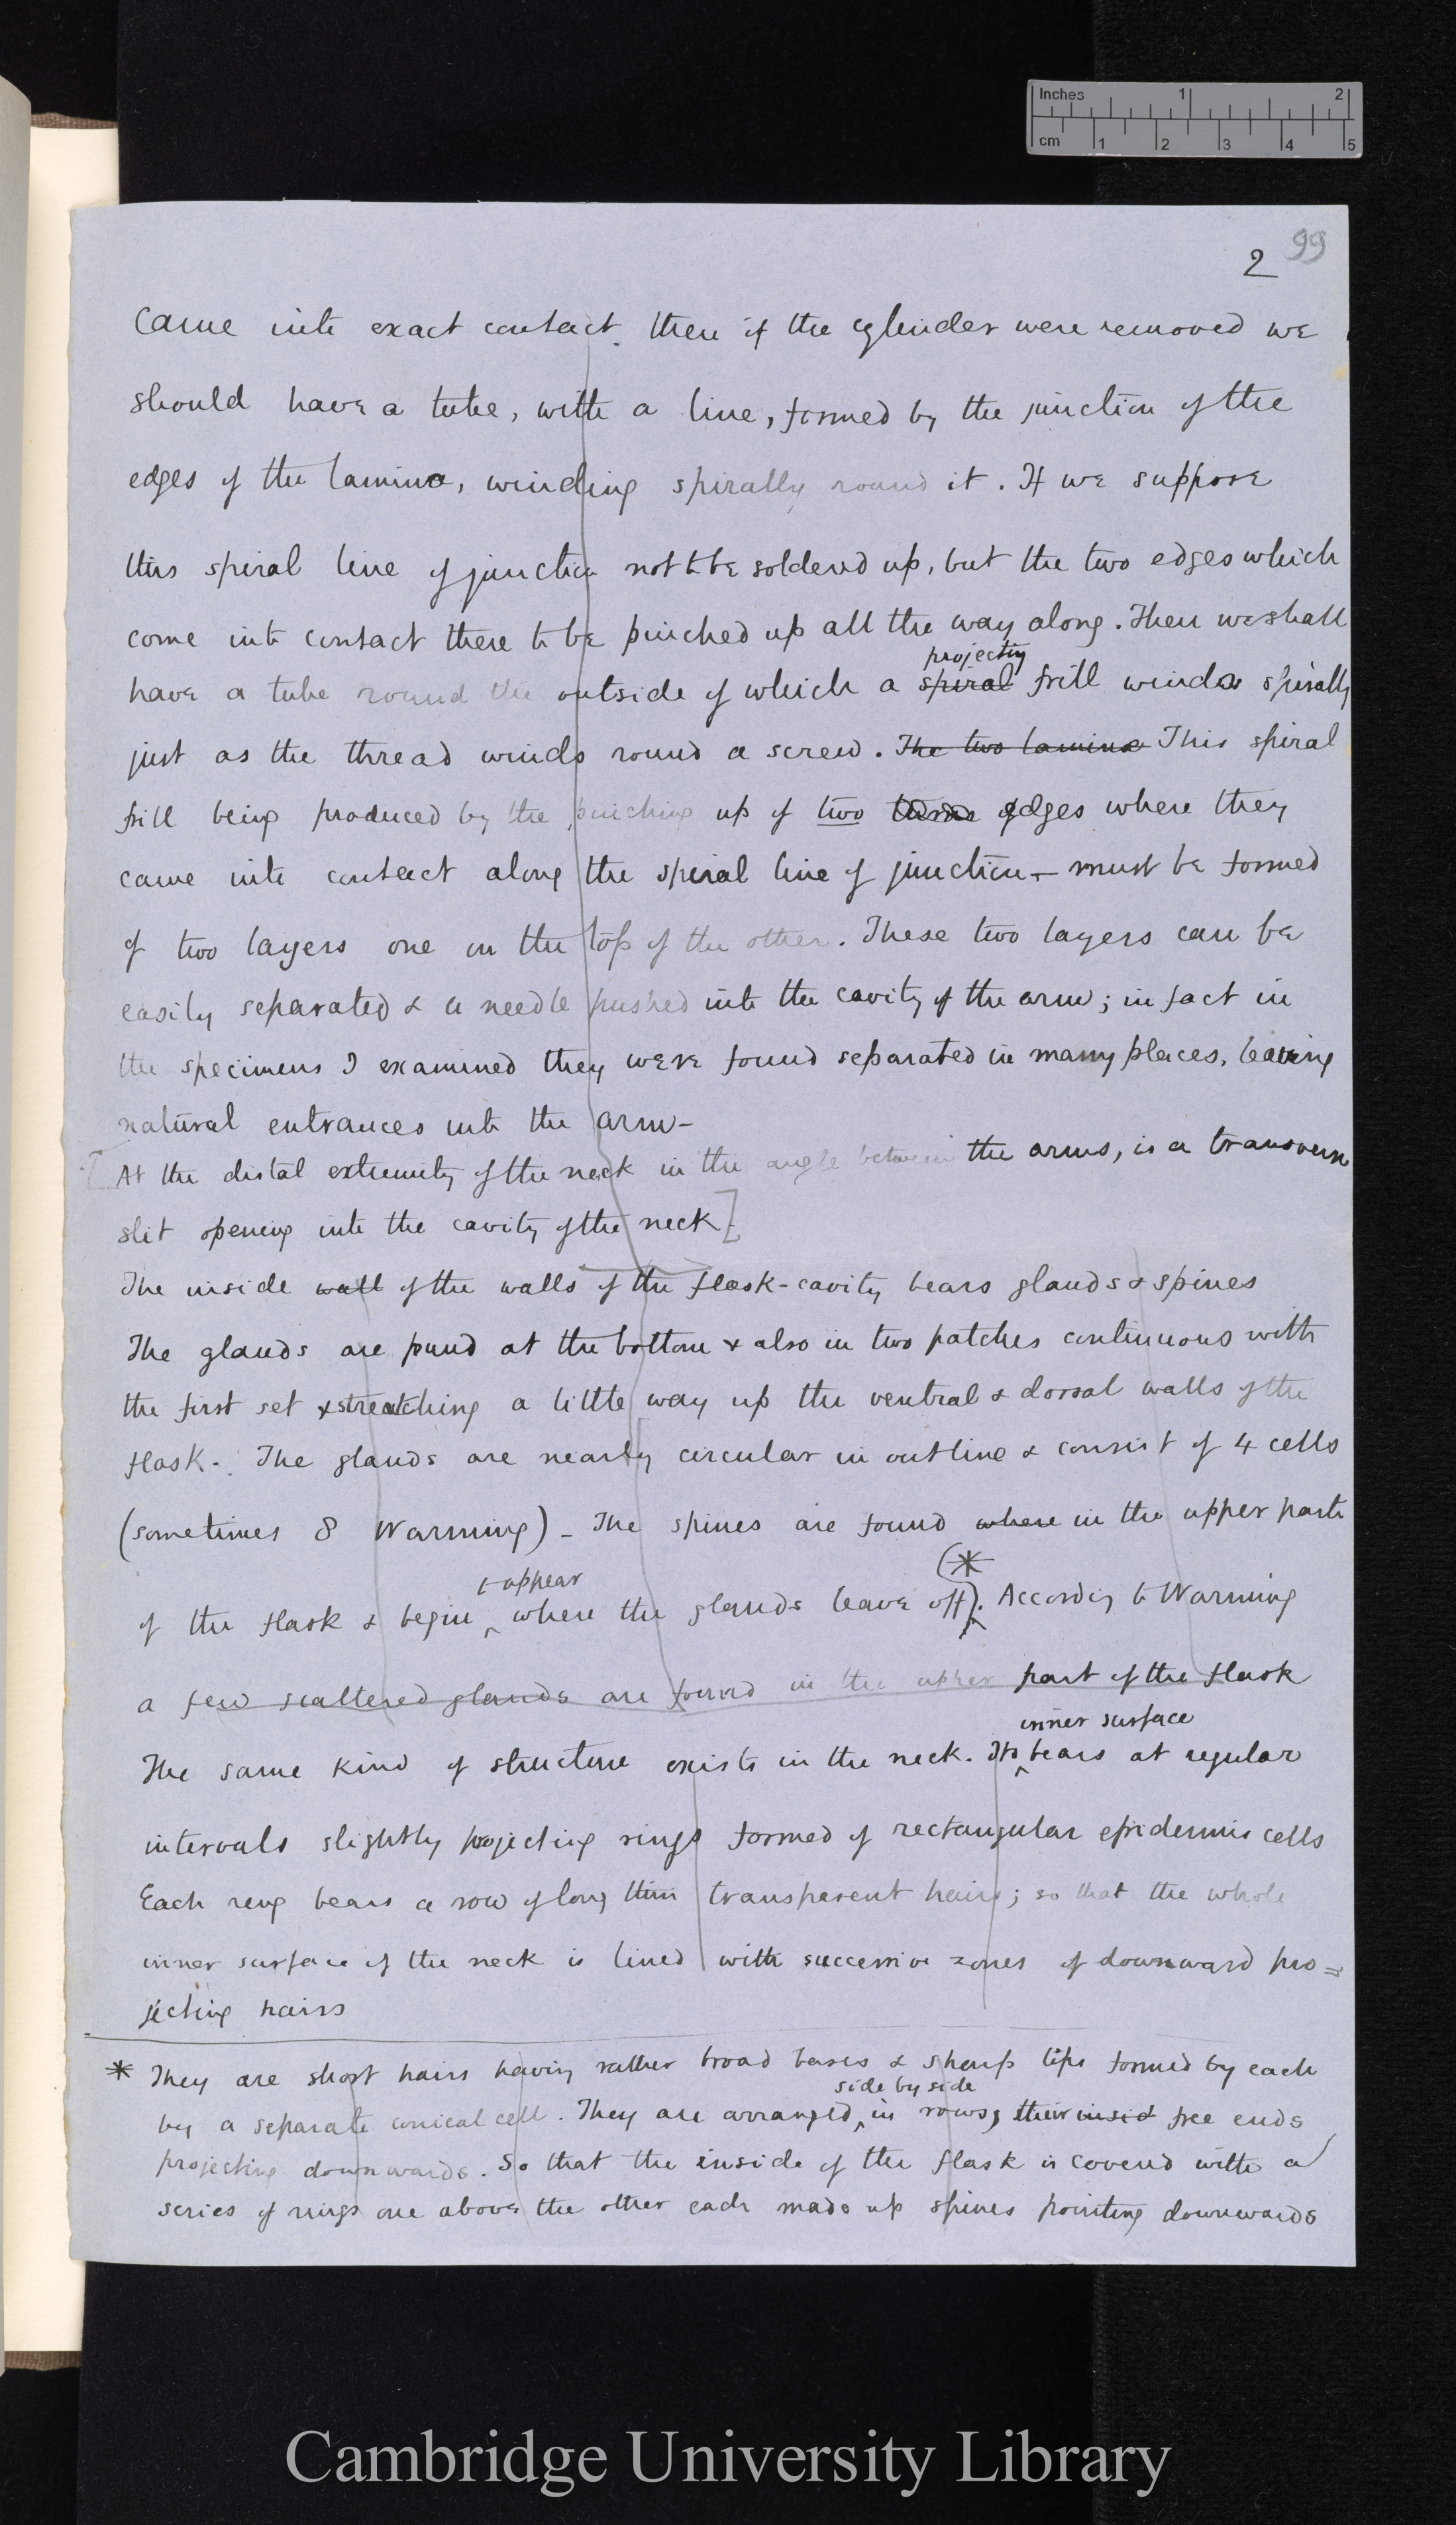 Inches 1 2
cm 1 2 3 4 5
99
2
came into exact contact. then if the cylinder were removed we
should have a tube, with a line, formed by the junction of the
edges of the lamina, winding spirally round it. If we suppose
this spiral line of junction not to be soldered up, but the two edges which
come into contact there to be pinched up all the way along. Then we shall
projecting
have a tube round the outside of which a spiral frill winds spirally
just as the thread winds round a screw. The two lamina This spiral
frill being produced by the pinching up of two edges where they
came into contact along the spiral line of junction — must be formed
of two layers one on the top of the other. These two layers can be
easily separated & a needle pushed into the cavity of the arm; in fact in
the specimens I examined they were found separated in many places, leaving
natural entrances into the arm-
[At the distal extremity of the neck in the angle between the arms, is a transverse
slit opening into the cavity of the neck]
The inside wall of the walls of the flask-cavity bears glands & spines
The glands are found at the bottom & also in two patches continuous with
the first set & stretching a little way up the ventral & dorsal walls of the
flask-. The glands are nearly circular in outline & consist of 4 cells
(sometimes 8 Warming) - The spines are found where in the upper parts
to appear (*
of the flask & begin where the glands leave off). According to Warming
a few scattered glands are found in the upper part of the flask
inner surface
The same kind of structure exists in the neck. Its bears at regular
intervals slightly projecting rings formed of rectangular epidermis cells
Each ring bears a row of long thin transparent hairs; so that the whole
inner surface of the neck is lined with successive zones of downward pro=
jecting hairs
* They are short hairs having rather broad bases & sharp tips formed by each
side by side
by a separate conical cell. They are arranged in rows, their insid free ends
projecting downwards. So that the inside of the flask is covered with a
series of rings one above the other each made up spines pointing downwards
Cambridge University Library